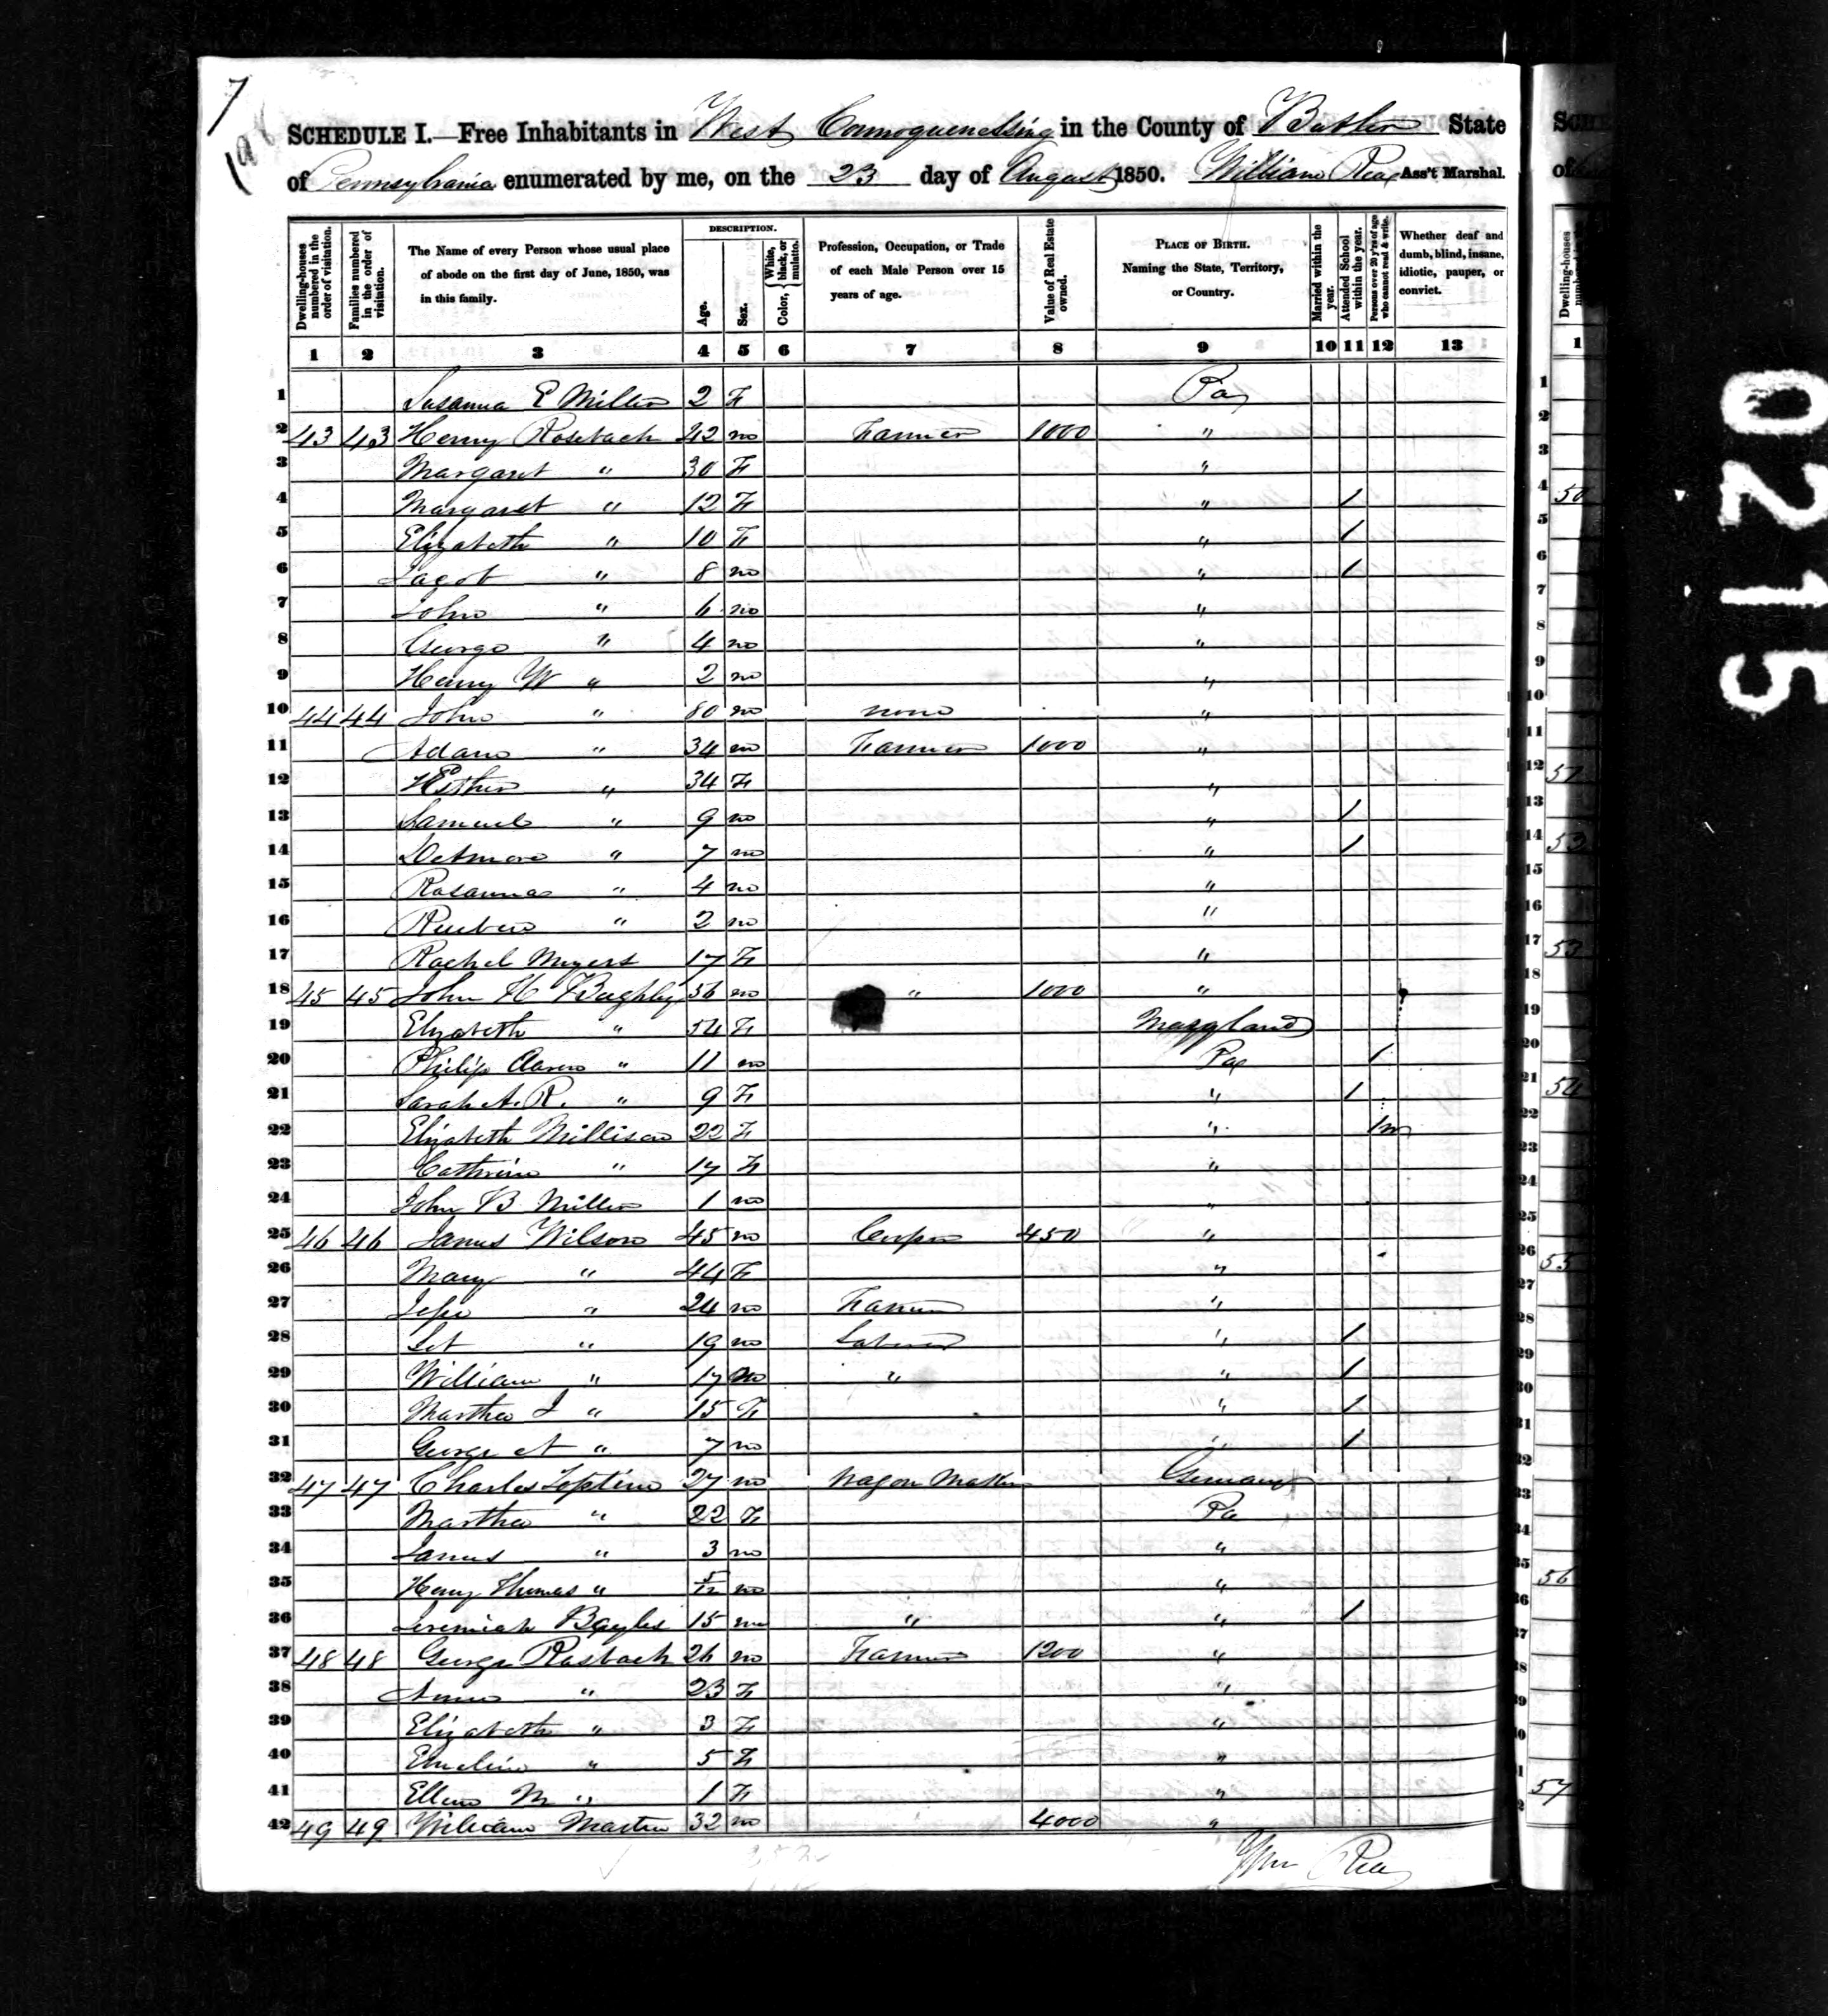 7
SCHEDULE I.—Free Inhabitants in West Connoquenessing in the County of Butler State
of Pennsylvania enumerated by me, on the 23 day of August 1850. William Rea Ass't Marshal.
Dwelling-houses numbered in the order of visitation. Families numbered in the order of visitation. The Name of every Person whose usual place of abode on the first day of June, 1850, was in this family. DESCRIPTION. Age. Sex. Color, White, black, or mulatto. Profession, Occupation, or Trade of each Male Person over 15 years of age. Value of Real Estate owned. PLACE OF BIRTH. Naming the State, Territory, or Country. Married within the year. Attended School within the year. Persons over 20 y'rs of age who cannot read & write. Whether deaf and dumb, blind, insane, idiotic, pauper, or convict.
1 2 3 4 5 6 7 8 9 10 11 12 13
1 Susanna E Miller 2 F Pa
2 43 43 Henry Rosebach 42 m Farmer 1000 "
3 Margaret " 30 F "
4 Margaret " 12 F " /
5 Elizabeth " 10 F " /
6 Jacob " 8 m " /
7 John " 6 m "
8 George " 4 m "
9 Henry W " 2 m "
10 44 44 John " 80 m none "
11 Adam " 34 m Farmer 1000 "
12 Esther " 34 F "
13 Samuel " 9 m " /
14 " 7 m " /
15 Rosanna " 4 m "
16 Reuben " 2 m "
17 Rachel Myers 17 F "
18 45 45 John H Baghly 56 m " 1000 "
19 Elizabeth " 54 F Maryland
20 Philip Aaron " 11 m Pa /
21 Sarah A. R. " 9 F " /
22 Elizabeth Millison 22 F " /
23 Cathrine " 17 F "
24 John B Miller 1 m "
25 46 46 James Wilson 45 m 450 "
26 Mary " 44 F "
27 Jesse " 24 m Farmer "
28 " 19 m Laborer " /
29 William " 17 m " " /
30 Martha J " 15 F " /
31 George A " 7 m " /
32 47 47 Charles 27 m Wagon Maker Germany
33 Martha " 22 F Pa
34 James " 3 m "
35 Henry Thomas " 5/12 m "
36 Jeremiah Bayles 15 m " " /
37 48 48 George Rasbach 26 m Farmer 1200 "
38 " 23 F "
39 Elizabeth " 3 F "
40 Emeline " 5 F "
41 Ellen M " 1 F "
42 49 49 William Martin 32 m 4000 "
Wm Rea
0215
50
51
53
54
55
56
57